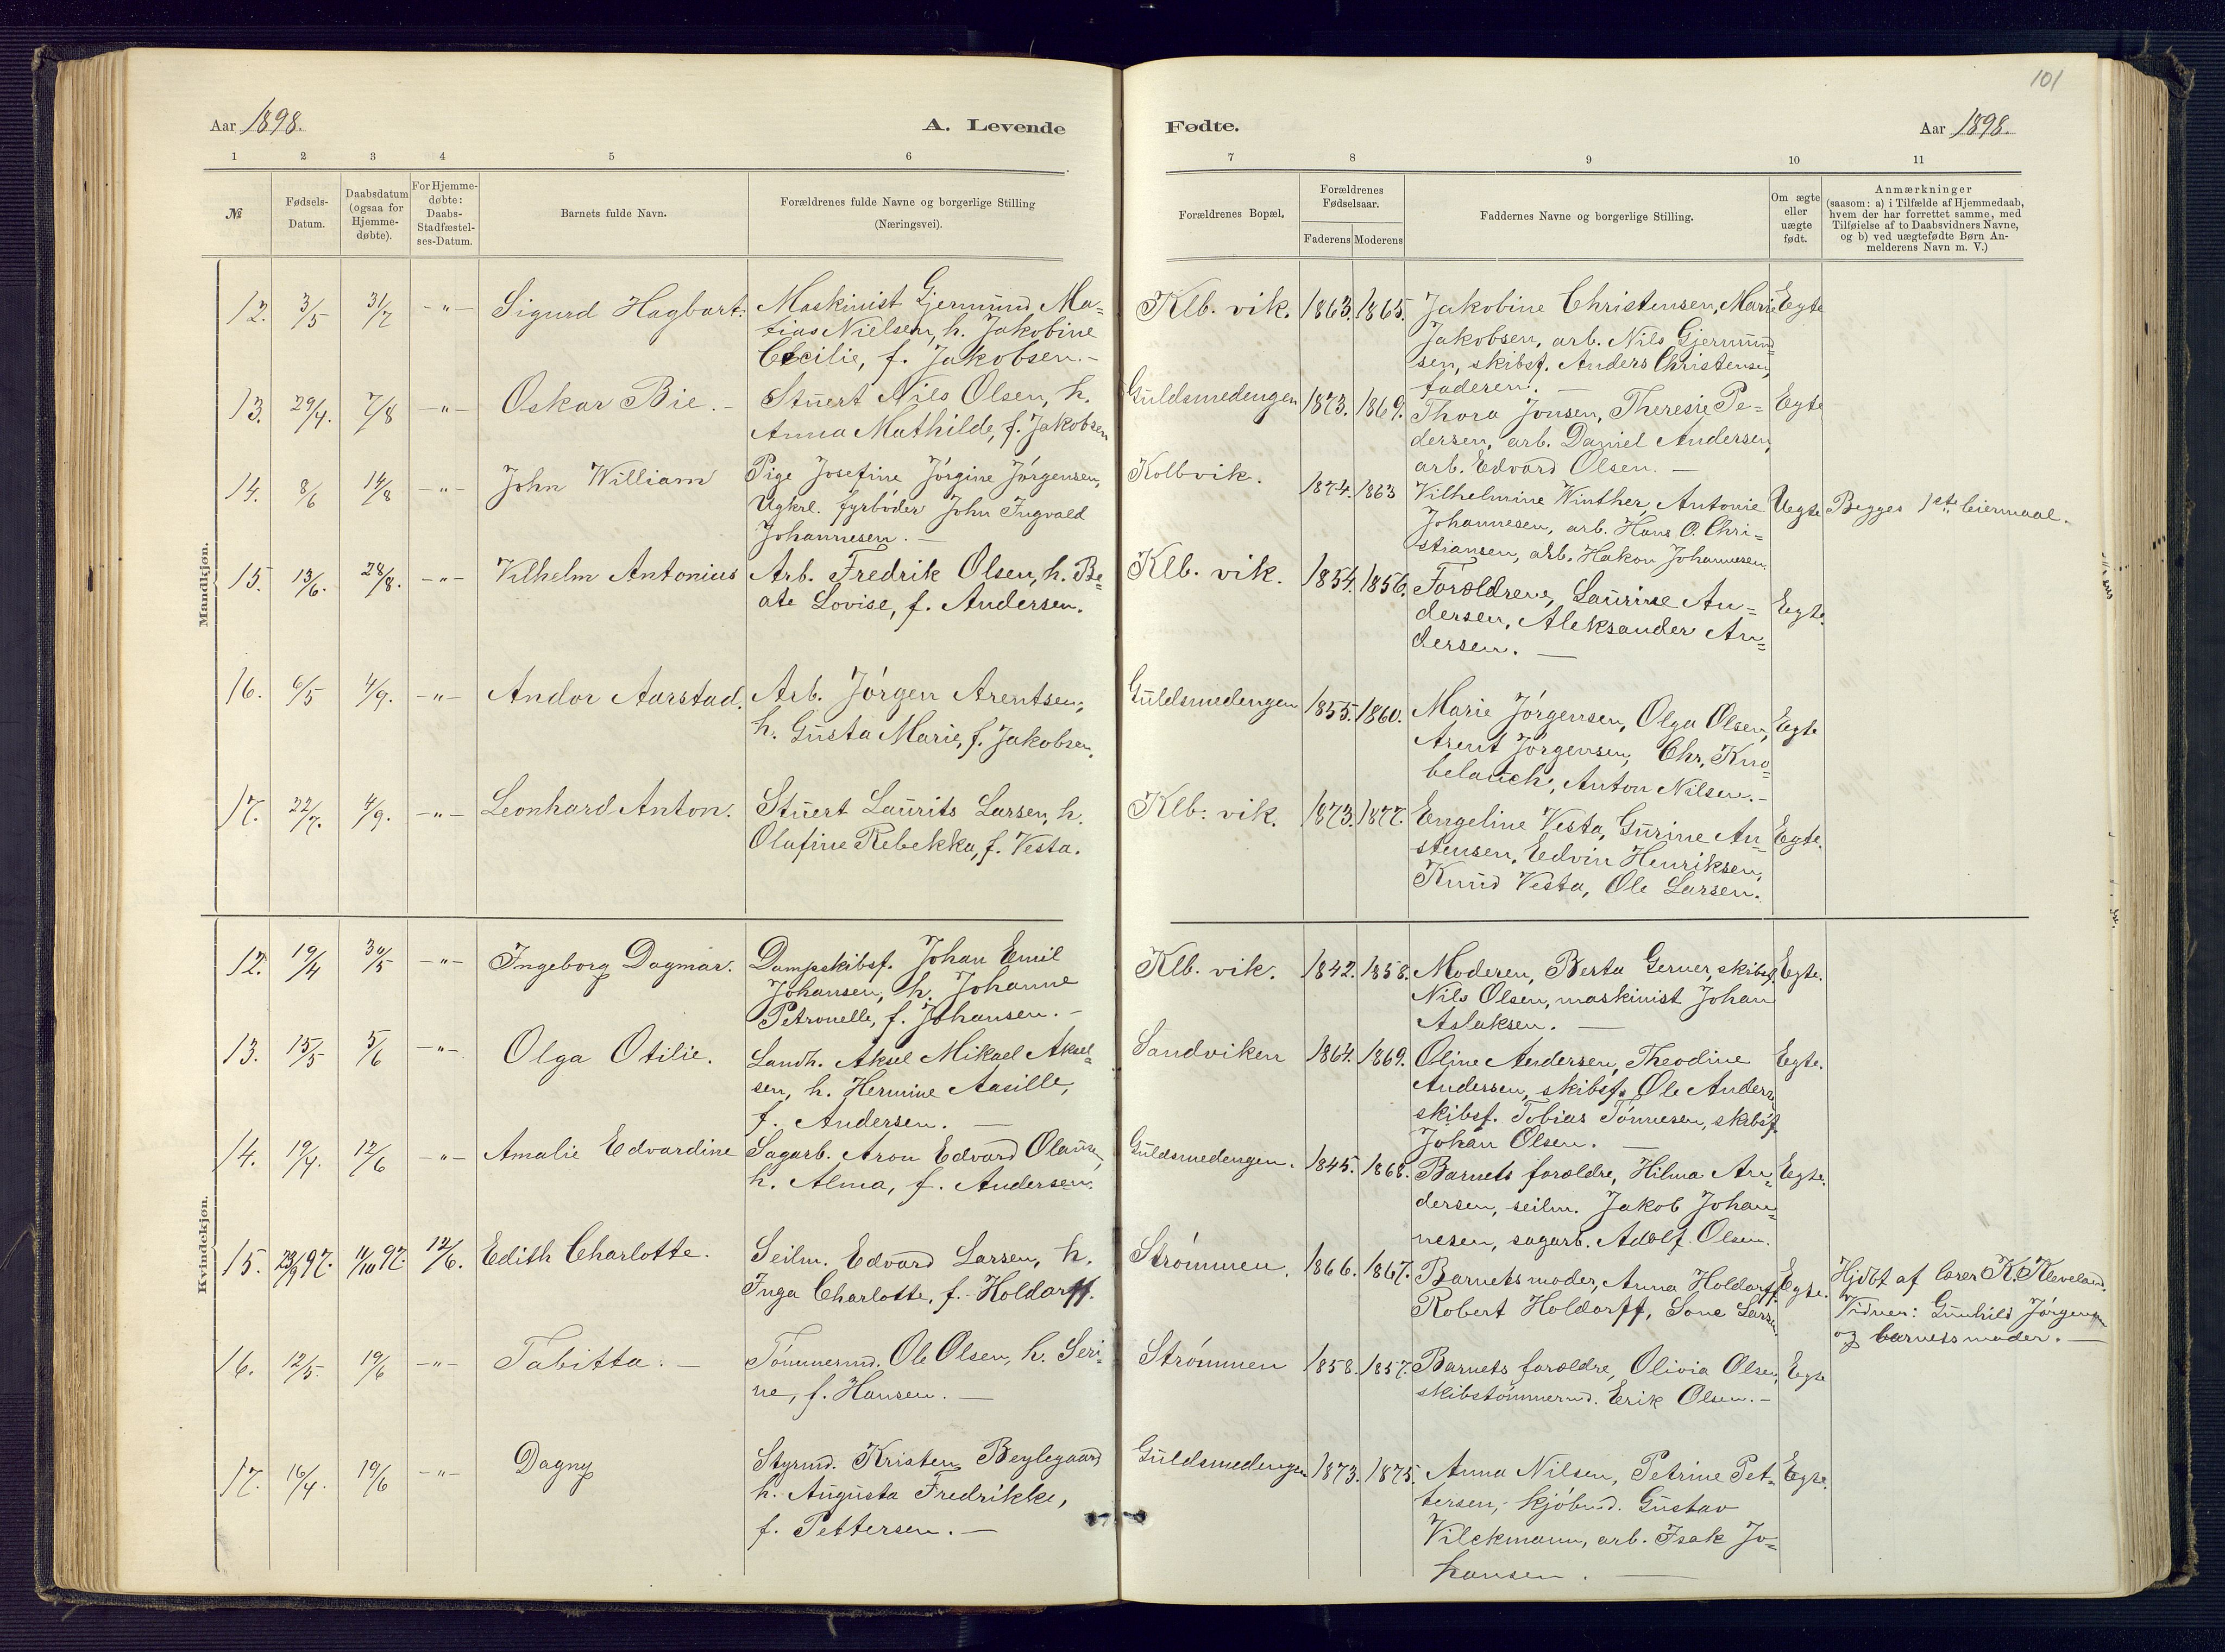 101
Aar 1898.
A. Levende
Fødte.
Aar 1898.
1 2 3 4 5 6 7 8 9 10 11
№
Fødsels-
Datum.
Daabsdatum
(ogsaa for
Hjemme-
døbte).
For Hjemme-
døbte:
Daabs-
Stadfæstel-
ses-Datum.
Barnets fulde Navn.
Forældrenes fulde Navne og borgerlige Stilling
(Næringsvei).
Forældrenes Bopæl.
Forældrenes
Fødselsaar.
Faderens Moderens
Faddernes Navne og borgerlige Stilling.
Om ægte
eller
uægte
født.
Anmærkninger
(saasom: a) i Tilfælde af Hjemmedaab,
hvem der har forrettet samme, med
Tilføielse af to Daabsvidners Navne,
og b) ved uægtefødte Børn An-
melderens Navn m. V.)
Mandkjøn.
12. 3/5 31/7 -"- Sigurd Hagbart. Maskinist Gjermund Ma=
tias Nielsen, h. Jakobine
Cecilie, f. Jakobsen.-
Klb. vik. 1863. 1865. Jakobine Christensen, Marie Egte
Jakobsen, arb. Nils Gjermund
sen, skibsf. Anders Christensen,
faderen. —
13. 29/4. 7/8 -"- Oskar Bie. - Stuert Nils Olsen, h.
Anna Mathilde, f. Jakobsen
Guldsmedengen 1873. 1869. Thora Jonsen, Theresie Pe= Egte
dersen, arb. Daniel Andersen,
arb. Edvard Olsen. —
14. 8/6 14/8 -"- John William Pige Josefine Jörgine Jörgensen,
Ugkrl. fyrböder John Ingvald
Johannesen. —
Kolbvik. 1874. 1863 Vilhelmine Winther, Antonie Uegte Begges 1ste leiermaal.
Johannesen, arb. Hans O. Chri-
stiansen, arb. Hakon Johannesen.
15. 13/6. 28/8. -"- Vilhelm Antonius Arb. Fredrik Olsen, h. Be=
ate Lovise, f. Andersen.
Klb. vik. 1854. 1856. Forældrene, Laurine An= Egte.
dersen, Aleksander An=
dersen. —
16. 6/5 4/9. -"- Andor Aarstad. Arb. Jörgen Arentsen,
h. Gusta Marie, f. Jakobsen.
Guldsmedengen 1855. 1860. Marie Jörgensen, Olga Olsen, Egte
Arent Jörgensen, Chr. Kno=
belauch, Anton Nilsen.-
17. 22/7. 4/9. -"- Leonhard Anton. Stuert Laurits Larsen, h.
Olafine Rebekka, f. Vesta.
Klb. vik. 1873. 1877. Engeline Vesta, Gurine An= Egte.
stensen, Edvin Henriksen,
Knud Vesta, Ole Larsen.
Kvindekjøn.
12. 19/4 30/5 -"- Ingeborg Dagmar. Dampskibsf. Johan Emil
Johansen, h. Johanne
Petronelle, f. Johansen. -
Klb. vik. 1842. 1858. Moderen, Berta Gerner, skibsf. Egte.
Nils Olsen, maskinist Johan
Aslaksen. —
13. 15/5 5/6 -"- Olga Otilie. Landh. Aksel Mikael Aksel=
sen, h. Hermine Aasille,
f. Andersen. —
Sandviken 1864. 1869. Oline Andersen, Theodine Egte.
Andersen, skibsf. Ole Andersen
skibsf. Tobias Tönnesen, skibsf.
Johan Olsen. —
14. 19/4. 12/6 -"- Amalie Edvardine Sagarb. Aron Edvard Olausen,
h. Alma, f. Andersen.
Guldsmedengen. 1845. 1868. Barnets forældre, Hilma An= Egte.
dersen, seilm. Jakob Johan=
nesen, sagarb. Adolf Olsen.
15. 23/9 97. 11/10 97. 12/6. Edith Charlotte. Seilm. Edvard Larsen, h.
Inga Charlotte, f. Holdorff.
Strömmen. 1866. 1867. Barnets moder, Anna Holdorff, Egte. Hjdbt af lærer K. Kleveland.
Robert Holdorff, Lone Larsen. Vidner: Gunhild Jörgensen
og barnets moder. —
16. 12/5. 19/6 -"- Tabitta. - Tömmermd. Ole Olsen, h. Seri=
ne, f. Hansen. —
Strömmen 1858. 1857. Barnets forældre, Olivia Olsen, Egte
skibstömmermd. Erik Olsen. -
17. 16/4. 19/6 -"- Dagny Styrmd. Kristen Beylegaard
h. Augusta Fredrikke,
f. Pettersen. —
Guldsmedengen 1873. 1875. Anna Nilsen, Petrine Pet= Egte.
tersen, kjöbmd. Gustav
Vilckmann, arb. Isak Jo=
hansen. —